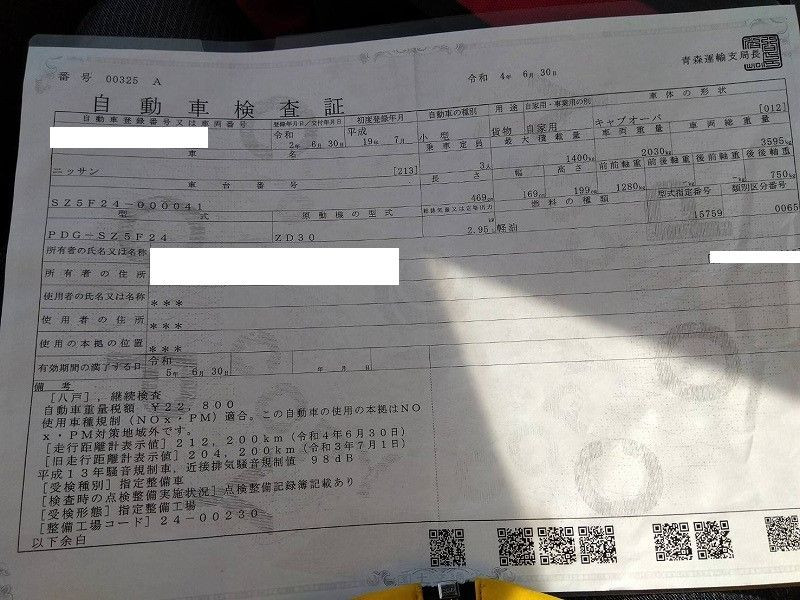 番号 00325 A
令和 4年 6月30日
青森運輸支局長
自動車検査証
自動車登録番号又は車両番号 登録年月日/交付年月日 初度登録年月 自動車の種別 用途 自家用・事業用の別 車体の形状
令和 2年 6月30日 平成 19年 7月 小型 貨物 自家用 キャブオーバ [012]
車名 乗車定員 最大積載量 車両重量 車両総重量
ニッサン [213] 3人 1400kg 2030kg 3595kg
車台番号 長さ 幅 高さ 前前軸重 前後軸重 後前軸重 後後軸重
SZ5F24-000041 469cm 169cm 199cm 1280kg -kg -kg 750kg
型式 原動機の型式 総排気量又は定格出力 燃料の種類 型式指定番号 類別区分番号
PDG-SZ5F24 ZD30 2.95 軽油 15759 0065
所有者の氏名又は名称
所有者の住所
使用者の氏名又は名称 ***
使用者の住所 ***
使用の本拠の位置 ***
有効期間の満了する日 令和 5年 6月30日 年 月 日
備考
[八戸],継続検査
自動車重量税額 ¥22,800
使用車種規制(NOx・PM)適合。この自動車の使用の本拠はNO
x・PM対策地域外です。
[走行距離計表示値]212,200km(令和4年6月30日)
[旧走行距離計表示値]204,200km(令和3年7月1日)
平成13年騒音規制車,近接排気騒音規制値 98dB
[受検種別]指定整備車
[検査時の点検整備実施状況]点検整備記録簿記載あり
[受検形態]指定整備工場
[整備工場コード]24-00230
以下余白